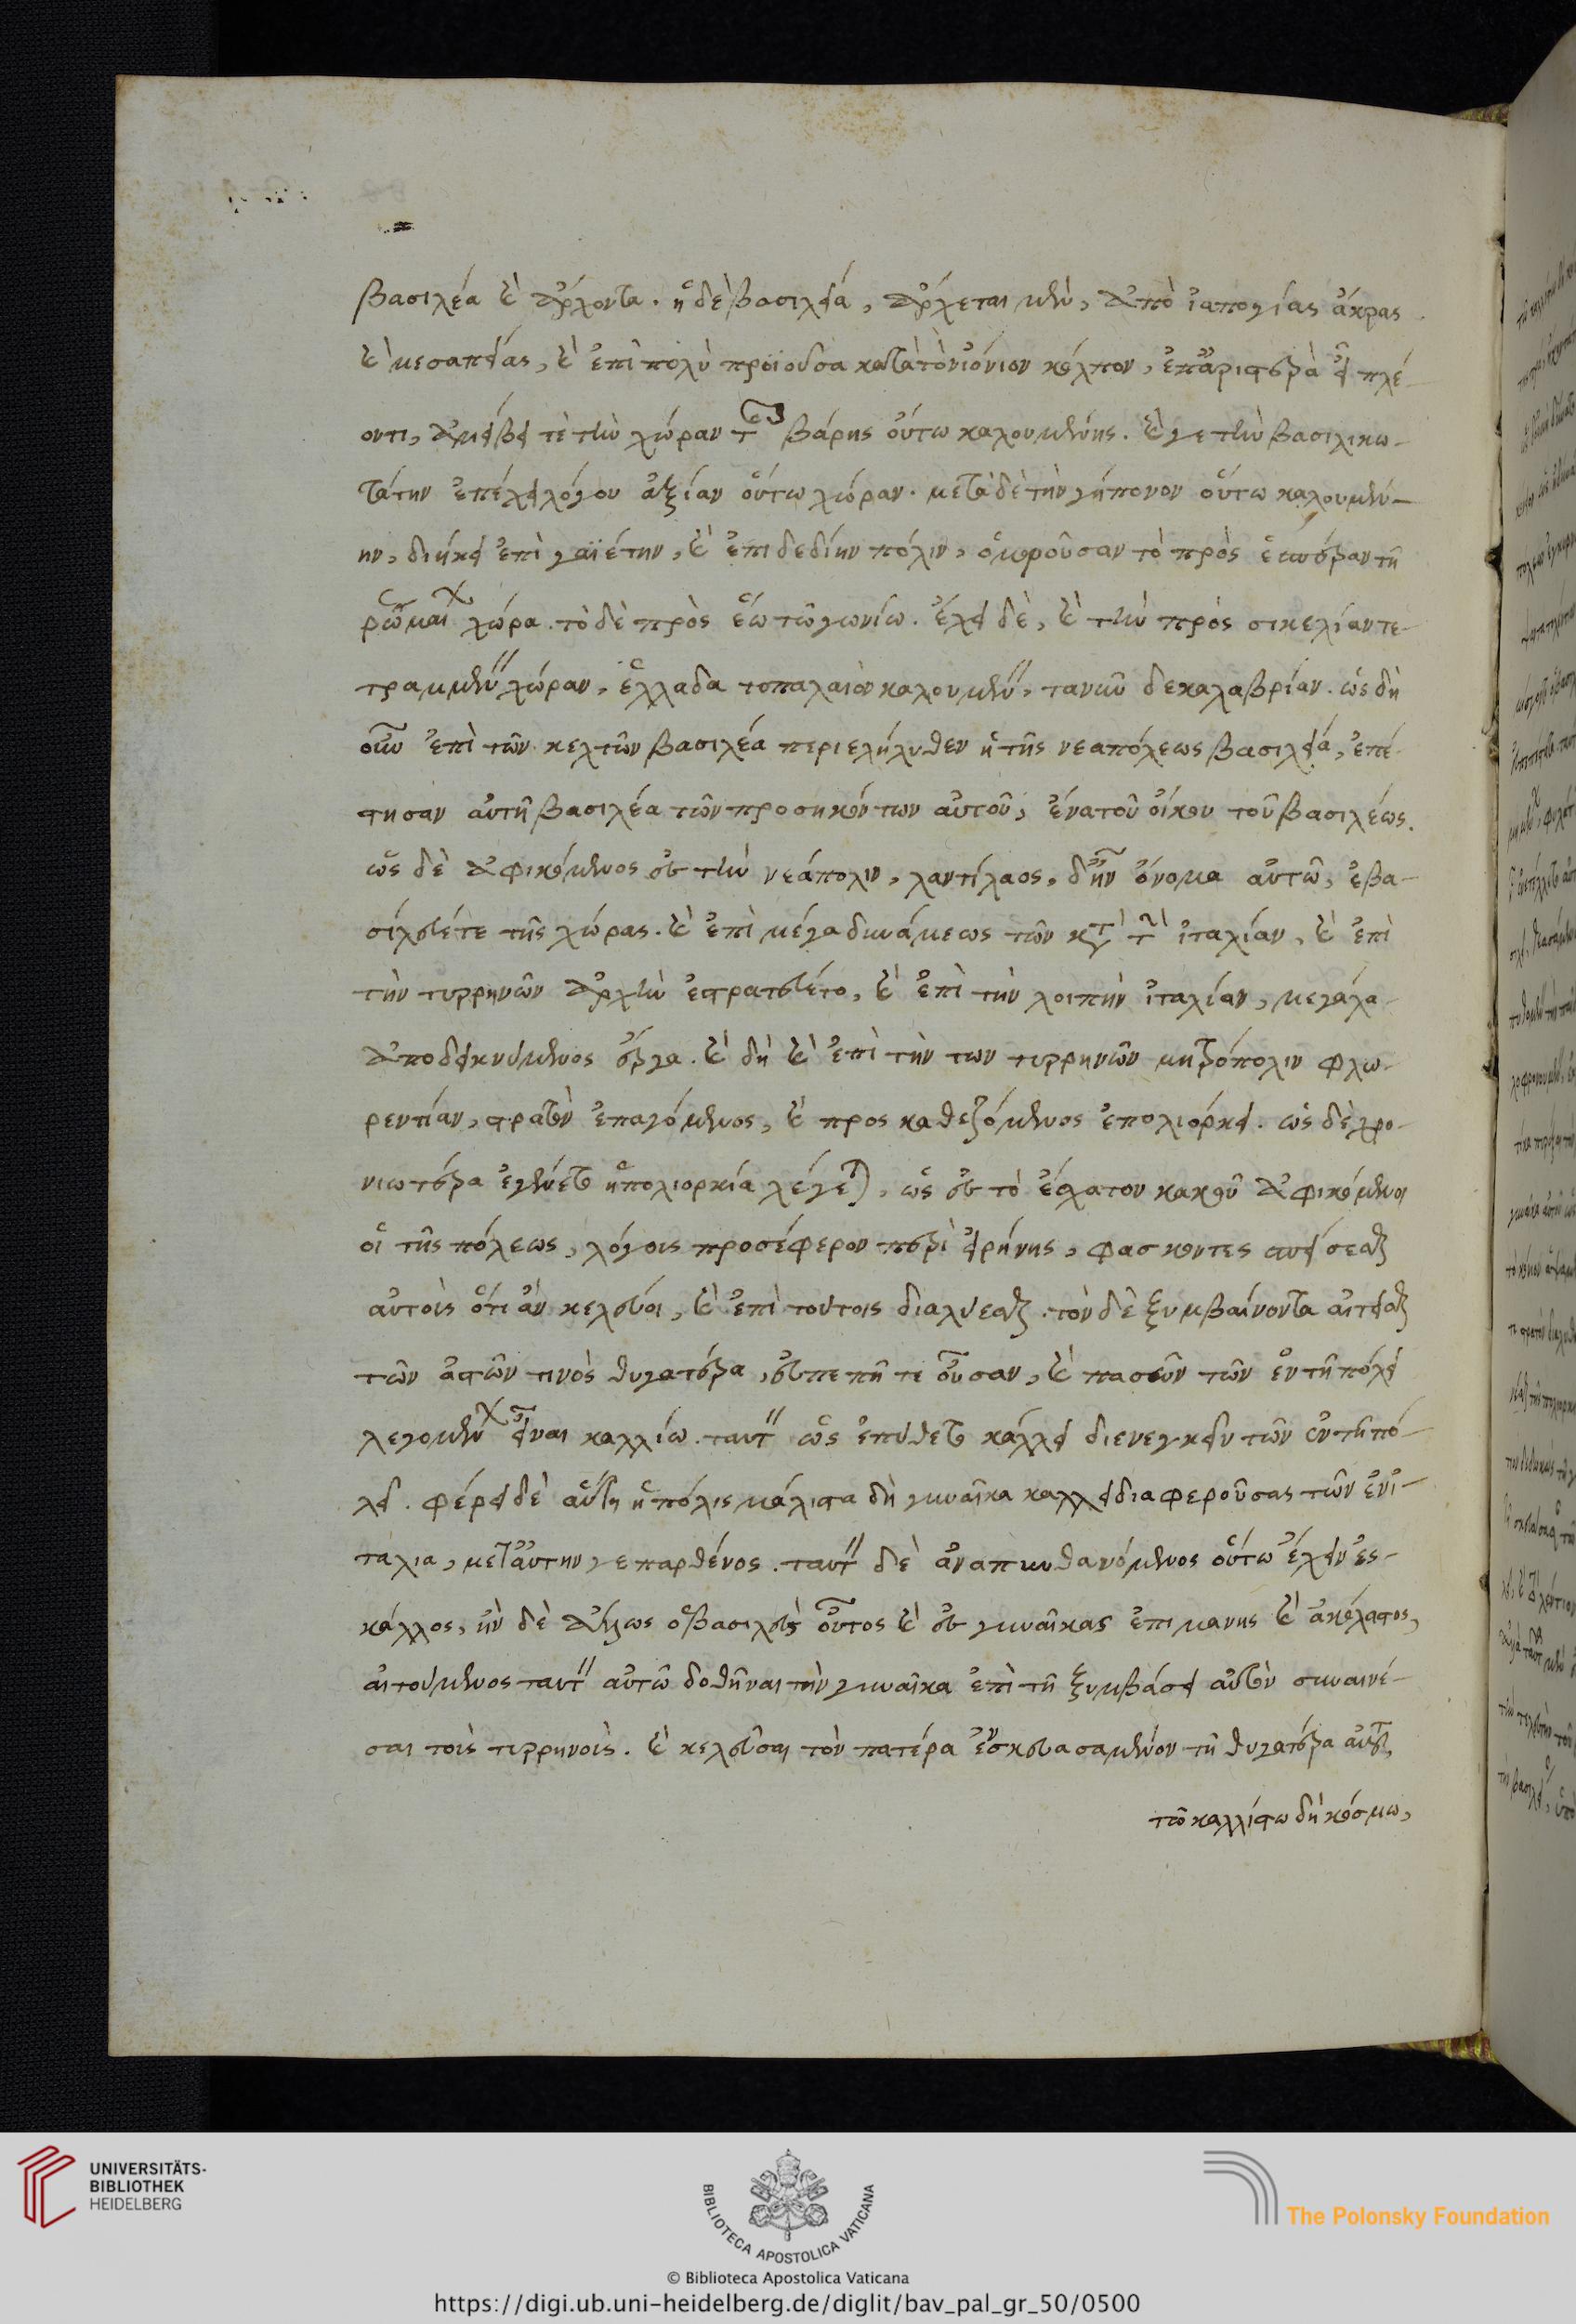 βασιλέα καὶ ἄρχοντα. ἡ δὲ βασιλεία, ἄρχεται μὲν, ἀπὸ ἰαπυγίας ἄκρας
καὶ μεσαπείας, καὶ ἐπὶ πολὺ προϊοῦσα κατὰ τὸν ἰόνιον κόλπον, ἐπ ἀριστερὰ εἰσπλέ-
οντι, ἀμείβει τὲ τὴν χώραν τῆς βάρης οὕτω καλουμένης. καί γε τὴν βασιλικω-
τάτην ἐπέχει λόγου ἀξίαν οὕτω χώραν. μετὰ δὲ τὴν γήπονον οὕτω καλουμέν-
ην, διήκει ἐπὶ γαϊέτην, καὶ ἐπι δεδίην πόλιν, ὁμοροῦσαν τὸ πρὸς ἑσπέραν τῆ
ῥωμαίων χώρα. τὸ δὲ πρὸς ἕω τῶ ἰωνίω. ἔχει δὲ, καὶ τὴν πρὸς σικελίαν τε-
τραμμένην χώραν, ἑλλαδα τοπαλαιὸν καλουμένην, τανῦν δε καλαβρίαν. ὡς δὴ
οὖν ἐπὶ τῶν κελτῶν βασιλέα περιελήλυθεν ἡ τῆς νεαπόλεως βασιλεία, ἐπέ-
στησαν αὐτῆ βασιλέα τῶν προσηκόντων αὐτοῦ, ἕνα τοῦ οἴκου τοῦ βασιλέως.
ὡς δὲ ἀφικόμενος ἐς τὴν νεάπολιν, λαντίλαος, δ ἦν ὄνομα αὐτῶ, ἐβα-
σίλευέ τε τῆς χώρας. καὶ ἐπὶ μέγα δυνάμεως τῶν κατὰ τὴν ἰταλίαν, καὶ ἐπὶ
τὴν τυρρηνῶν ἀρχὴν ἐστρατεύετο, καὶ ἐπὶ τὴν λοιπὴν ἰταλίαν, μεγάλα
ἀποδεικνύμενος ἔργα. καὶ δὴ καὶ ἐπὶ τὴν των τυρρηνῶν μητρόπολιν φλω-
ρεντίαν, στρατὸν ἐπαγόμενος, καὶ προς καθεζόμενος ἐπολιόρκει. ὡς δὲ χρο-
νιωτέρα ἐγένετο ἡ πολιορκία λέγεται, ὡς ἐς τὸ ἔσχατον κακοῦ ἀφικόμενοι
οἱ τῆς πόλεως, λόγοις προσέφερον περὶ εἰρήνης, φασκοντες ποιήσεσθαι
αὐτοῖς ὅτι ἂν κελεύοι, καὶ ἐπὶ τούτοις διαλύεσθαι. τὸν δὲ ξυμβαίνοντα αἰτεῖσθαι
τῶν ἀστῶν τινὸς θυγατέρα, εὐπεπῆ τε οὖσαν, καὶ πασῶν τῶν ἐν τῆ πόλει
λεγομένων εἶναι καλλίω. ταύτην ὡς ἐπύθετο κάλλει διενεγκεῖν τῶν ἐν τῆ πό-
λει. φέρει δὲ αὕτη ἡ πόλις μάλιστα δὴ γυναῖκα καλλει διαφερούσας τῶν ἐν ἰ-
τάλια, μετ αὐτην γε παρθένος. ταύτην δὲ ἀναπυνθανόμενος οὕτω ἔχειν ἐς
κάλλος, ἦν δὲ ἄλλως ὁ βασιλεὺς οὗτος καὶ ἐς γυναῖκας ἐπιμανης καὶ ἀκόλαστος,
αἰτούμενος ταύτην αὐτῶ δοθῆναι τὴν γυναῖκα ἐπὶ τῆ ξυμβάσει αὐτὸν συναινέ-
σαι τοῖς τυρρηνοῖς. καὶ κελεῦσαι τὸν πατέρα ἐνσκευασαμένον τῆ θυγατέρα αὐτοῦ,
τῶ καλλίστω δὴ κόσμω,
UNIVERSITÄTS-
BIBLIOTHEK
HEIDELBERG
BIBLIOTECA APOSTOLICA VATICANA
The Polonsky Foundation
© Biblioteca Apostolica Vaticana
https://digi.ub.uni-heidelberg.de/diglit/bav_pal_gr_50/0500